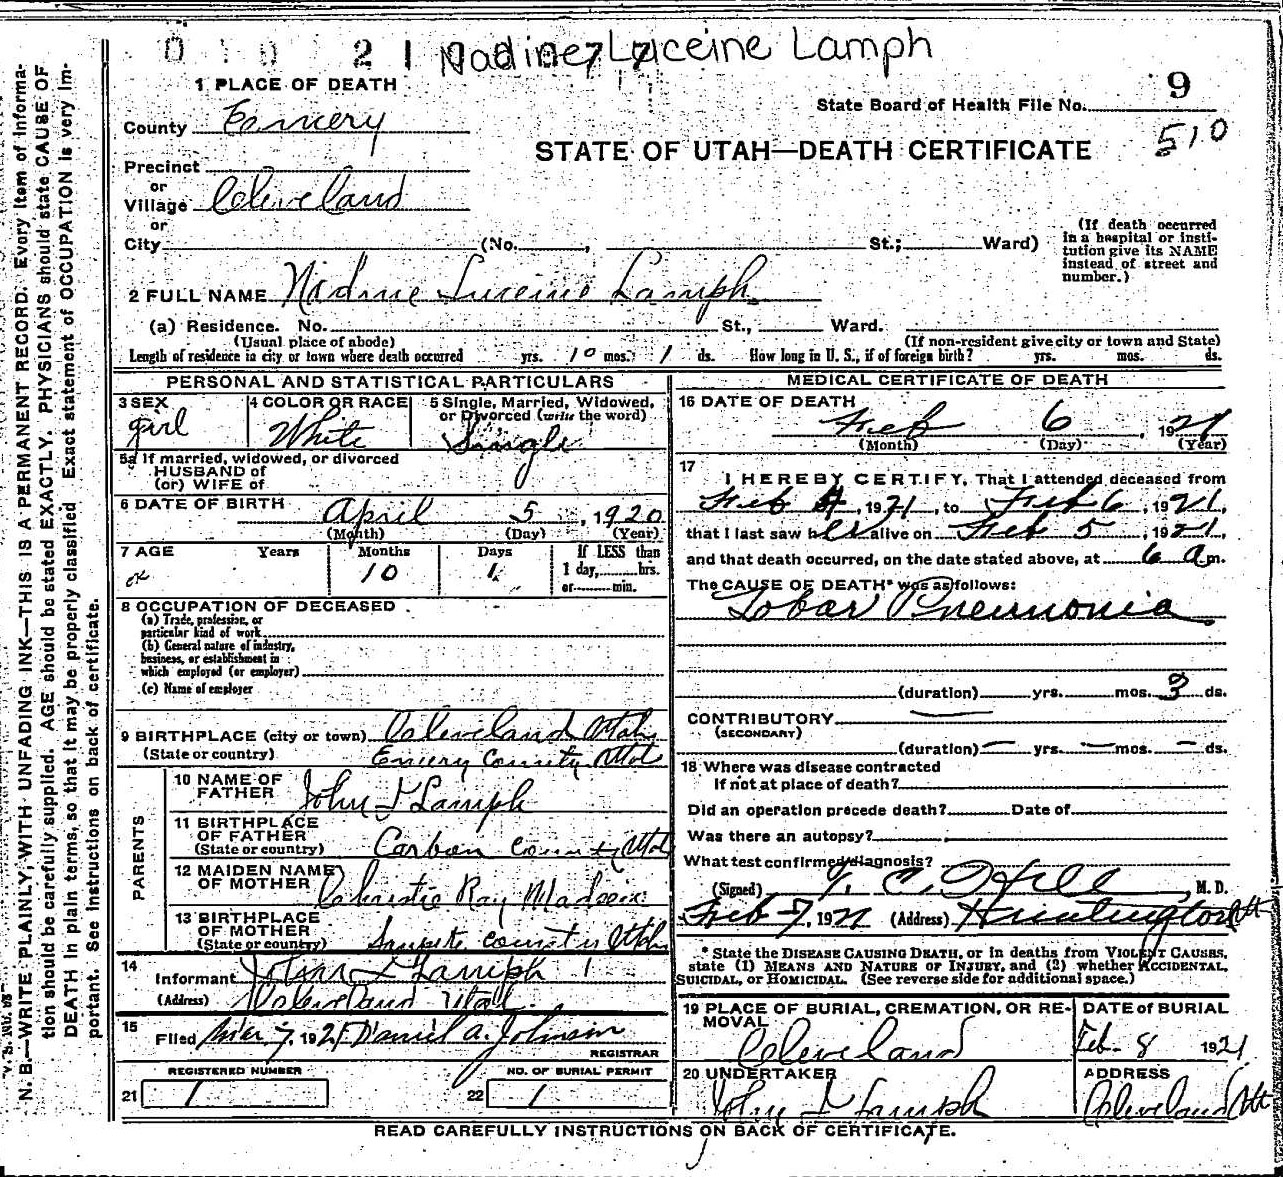 0 1 0 2 1 7 7
Nadine Luceine Lamph
1 PLACE OF DEATH
State Board of Health File No. 9
510
County Emery
STATE OF UTAH—DEATH CERTIFICATE
Precinct
or
Village Cleveland
or
City (No. , St.; Ward)
(If death occurred in a hospital or institution give its NAME instead of street and number.)
2 FULL NAME Nadine Luceine Lamph
(a) Residence. No. St., Ward.
(Usual place of abode) (If non-resident give city or town and State)
Length of residence in city or town where death occurred yrs. 10 mos. 1 ds. How long in U. S., if of foreign birth? yrs. mos. ds.
PERSONAL AND STATISTICAL PARTICULARS
3 SEX 4 COLOR OR RACE 5 Single, Married, Widowed,
or Divorced (write the word)
girl White Single
5a If married, widowed, or divorced
HUSBAND of
(or) WIFE of
6 DATE OF BIRTH
April 5, 1920
(Month) (Day) (Year)
7 AGE Years Months Days If LESS than
10 1 1 day, hrs.
or min.
8 OCCUPATION OF DECEASED
(a) Trade, profession, or
particular kind of work
(b) General nature of industry,
business, or establishment in
which employed (or employer)
(c) Name of employer
9 BIRTHPLACE (city or town) Cleveland Utah
(State or country) Emery County Utah
PARENTS
10 NAME OF
FATHER John L Lamph
11 BIRTHPLACE
OF FATHER
(State or country) Carbon County Utah
12 MAIDEN NAME
OF MOTHER Christie Ray Madsen
13 BIRTHPLACE
OF MOTHER
(State or country) Sanpete County Utah
14
Informant John L Lamph
(Address) Cleveland Utah
15
Filed Mar 7, 1921 Daniel A. Johnson
REGISTRAR
REGISTERED NUMBER NO. OF BURIAL PERMIT
21 1 22 1
MEDICAL CERTIFICATE OF DEATH
16 DATE OF DEATH
Feb 6, 1921
(Month) (Day) (Year)
17
I HEREBY CERTIFY, That I attended deceased from
Feb 4, 1921, to Feb 6, 1921,
that I last saw her alive on Feb 5, 1921,
and that death occurred, on the date stated above, at 6 a m.
The CAUSE OF DEATH* was as follows:
Lobar Pneumonia
(duration) yrs. mos. 3 ds.
CONTRIBUTORY
(SECONDARY)
(duration) — yrs. — mos. — ds.
18 Where was disease contracted
If not at place of death?
Did an operation precede death? Date of
Was there an autopsy?
What test confirmed diagnosis?
(Signed) T. C. Hill, M. D.
Feb 7, 1921 (Address) Huntington Ut
* State the DISEASE CAUSING DEATH, or in deaths from VIOLENT CAUSES,
state (1) MEANS AND NATURE OF INJURY, and (2) whether ACCIDENTAL,
SUICIDAL, or HOMICIDAL. (See reverse side for additional space.)
19 PLACE OF BURIAL, CREMATION, OR RE- DATE of BURIAL
MOVAL
Cleveland Feb. 8 1921
20 UNDERTAKER ADDRESS
John L Lamph Cleveland Ut
READ CAREFULLY INSTRUCTIONS ON BACK OF CERTIFICATE.
N. B.—WRITE PLAINLY, WITH UNFADING INK—THIS IS A PERMANENT RECORD. Every item of informa-
tion should be carefully supplied. AGE should be stated EXACTLY. PHYSICIANS should state CAUSE OF
DEATH in plain terms, so that it may be properly classified. Exact statement of OCCUPATION is very im-
portant. See instructions on back of certificate.